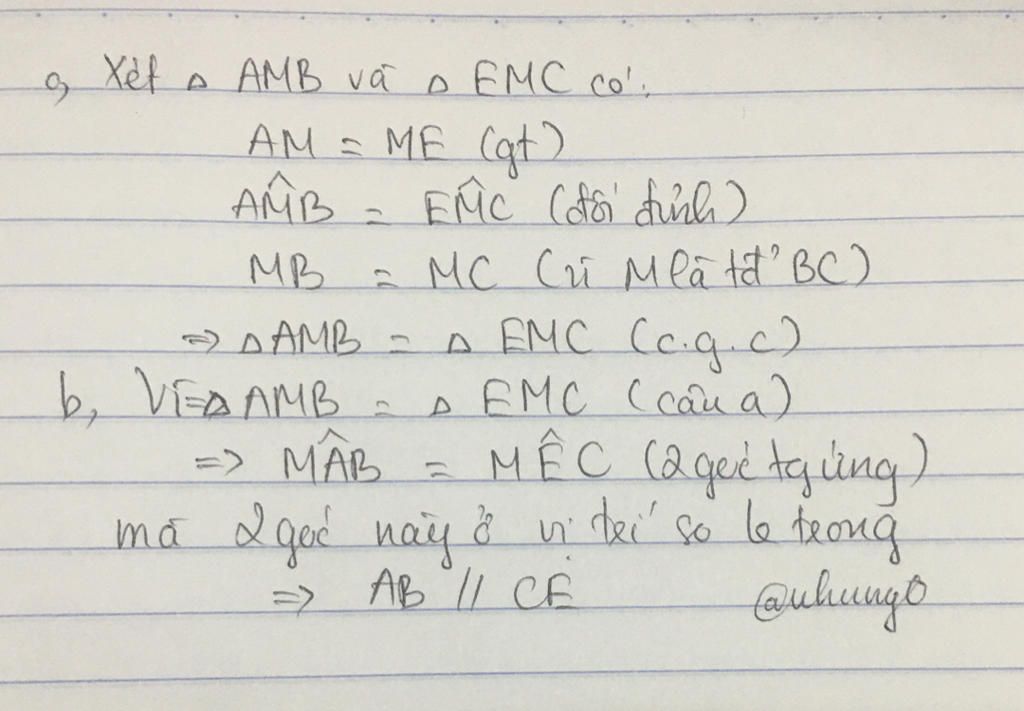 a, Xét △ AMB và △ EMC có:
AM = ME (gt)
AM̂B = EM̂C (đối đỉnh)
MB = MC (vì M là tđ' BC)
=> △ AMB = △ EMC (c.g.c)
b, Vì △ AMB = △ EMC (câu a)
=> MÂB = MÊC (2 góc tg ứng)
mà 2 góc này ở vị trí so le trong
=> AB // CE @nhung0